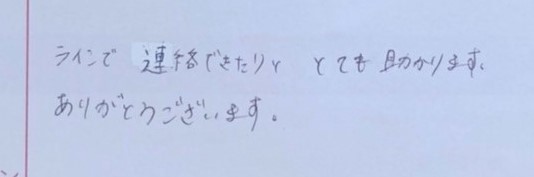 ラインで 連絡できたりと とても助かります。
ありがとうございます。